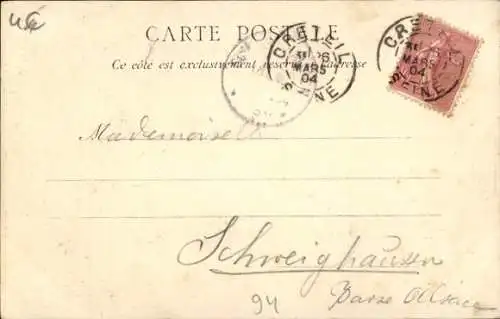 CARTE POSTALE
Ce côté est exclusivement réservé à l'adresse
CRETEIL
MARS
04
SEINE
CRETEIL
MARS
04
SEINE
Mademoiselle
Schweighausen
94 Basse Alsace